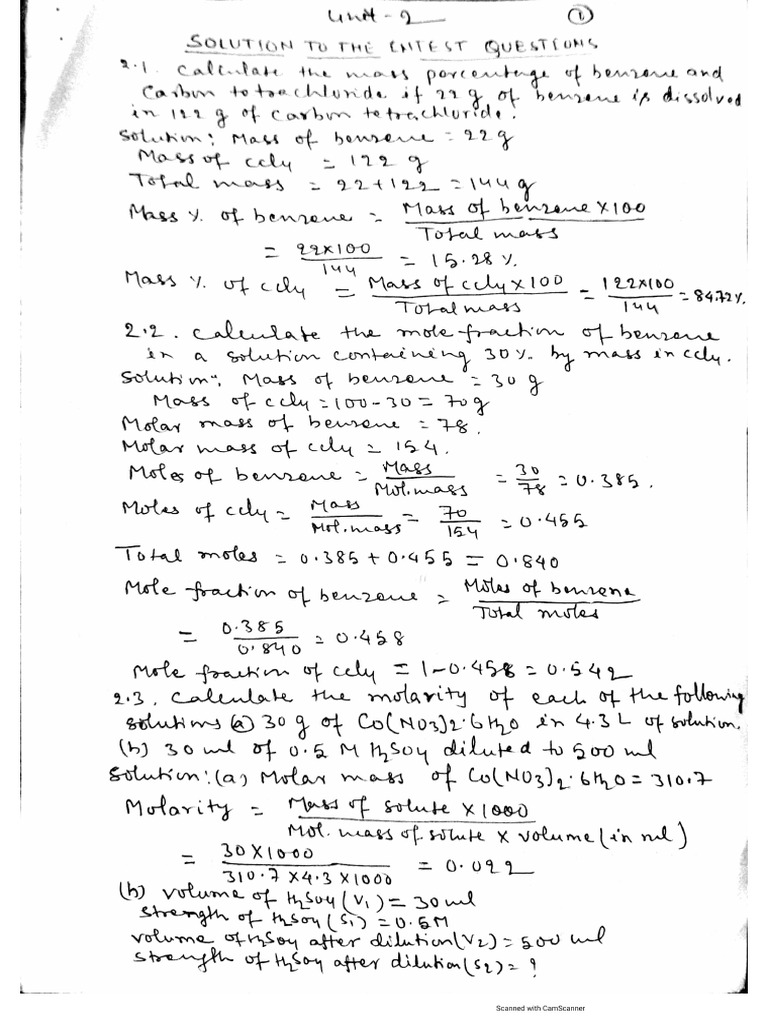 Unit-2 ①
SOLUTION TO THE INTEST QUESTIONS
2.1. Calculate the mass percentage of benzene and
Carbon tetrachloride if 22 g of benzene is dissolved
in 122 g of carbon tetrachloride.
Solution: Mass of benzene = 22 g
Mass of ccl4 = 122 g
Total mass = 22 + 122 = 144 g
Mass %. of benzene = Mass of benzene × 100 / Total mass
= 22×100 / 144 = 15.28 %.
Mass %. of ccl4 = Mass of ccl4 × 100 / Total mass = 122×100 / 144 = 84.72 %.
2.2. Calculate the mole fraction of benzene
in a solution containing 30 %. by mass in ccl4.
Solution: Mass of benzene = 30 g
Mass of ccl4 = 100 - 30 = 70 g
Molar mass of benzene = 78.
Molar mass of ccl4 = 154.
Moles of benzene = Mass / Mol. mass = 30 / 78 = 0.385.
Moles of ccl4 = Mass / Mol. mass = 70 / 154 = 0.455
Total moles = 0.385 + 0.455 = 0.840
Mole fraction of benzene = Moles of benzene / Total moles
= 0.385 / 0.840 = 0.458
Mole fraction of ccl4 = 1 - 0.458 = 0.542
2.3. Calculate the molarity of each of the following
solutions (a) 30 g of Co(NO3)2.6H2O in 4.3 L of solution.
(b) 30 ml of 0.5 M H2SO4 diluted to 500 ml
Solution: (a) Molar mass of Co(NO3)2.6H2O = 310.7
Molarity = Mass of solute × 1000 / Mol. mass of solute × volume (in ml)
= 30×1000 / 310.7 × 4.3 × 1000 = 0.022
(b) volume of H2SO4 (V1) = 30 ml
strength of H2SO4 (S1) = 0.5 M
volume of H2SO4 after dilution (V2) = 500 ml
strength of H2SO4 after dilution (S2) = ?
Scanned with CamScanner